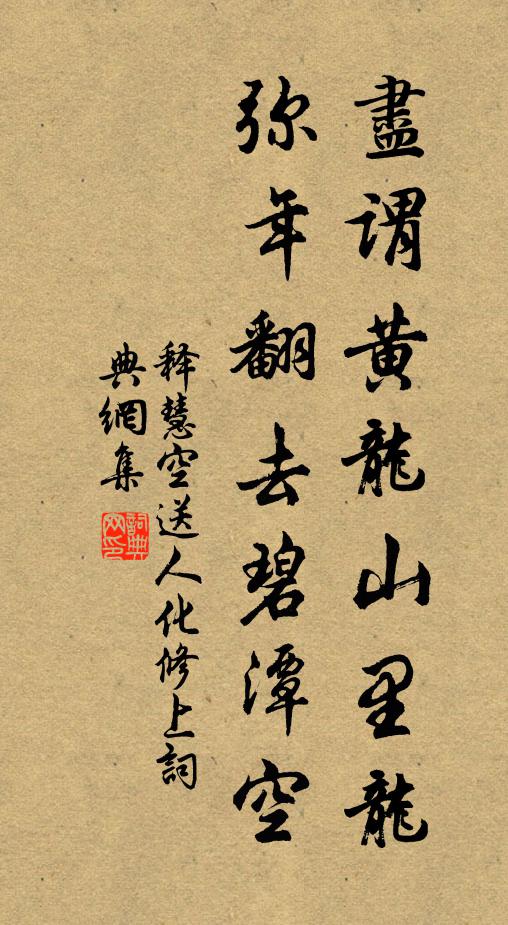 盡謂黃龍山里龍
弥年翻去碧潭空
释慧空送人化修上詞
典網集
詞典
网印